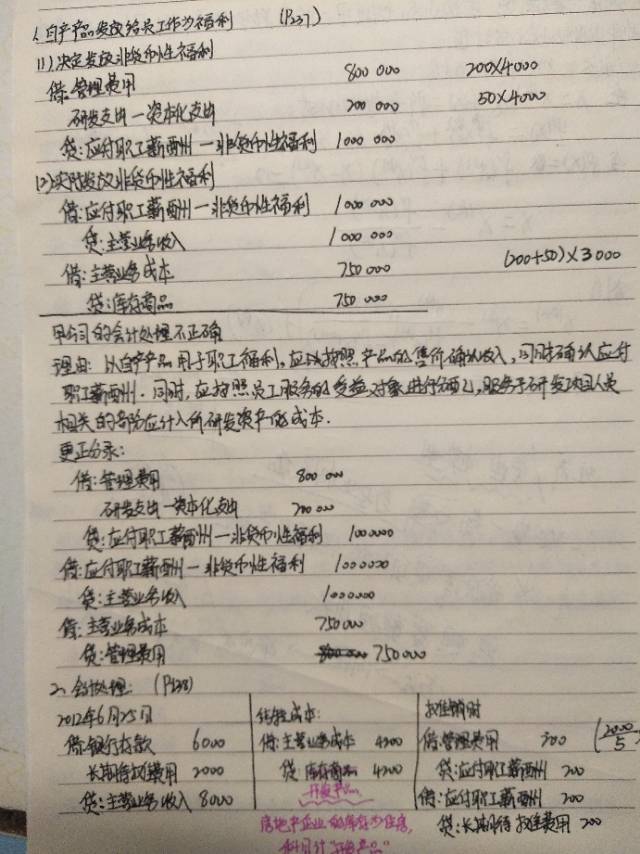 1、自产产品发放给员工作为福利 (P237)
(1)、决定发放非货币性福利
借:管理费用 800 000 200×4000
研发支出—资本化支出 200 000 50×4000
贷:应付职工薪酬—非货币性福利 1000 000
(2)实际发放非货币性福利
借:应付职工薪酬—非货币性福利 1000 000
贷:主营业务收入 1000 000
借:主营业务成本 750 000 (200+50)×3000
贷:库存商品 750 000
甲公司的会计处理不正确
理由:以自产产品用于职工福利,应以按照产品的售价确认收入,同时确认应付
职工薪酬.同时,应按照员工服务的受益对象进行分配,服务于研发项目人员
相关的部分应计入所研发资产的成本.
更正分录:
借:管理费用 800 000
研发支出—资本化支出 200 000
贷:应付职工薪酬—非货币性福利 1000000
借:应付职工薪酬—非货币性福利 1000000
贷:主营业务收入 1000000
借:主营业务成本 750000
贷:管理费用 750000
2、会计处理: (P238)
2012年6月25日
借:银行存款 6000
长期待摊费用 2000
贷:主营业务收入 8000
结转成本:
借:主营业务成本 4200
贷:库存商品 4200
开发产品
房地产企业的库存为住房,
科目计"开发产品"
摊销时
借:管理费用 200 (2000/5
贷:应付职工薪酬 200
借:应付职工薪酬 200
贷:长期待摊费用 200